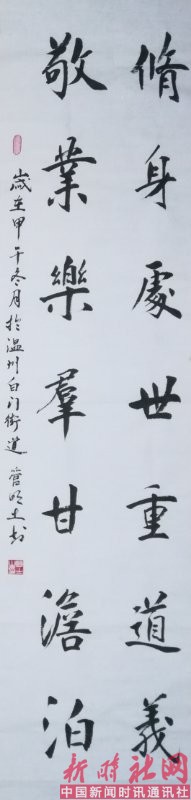 脩身處世重道義
敬業樂羣甘澹泊
歲在甲午冬月於温州白门街道 管明士书
新時社网
中国新闻时讯通讯社